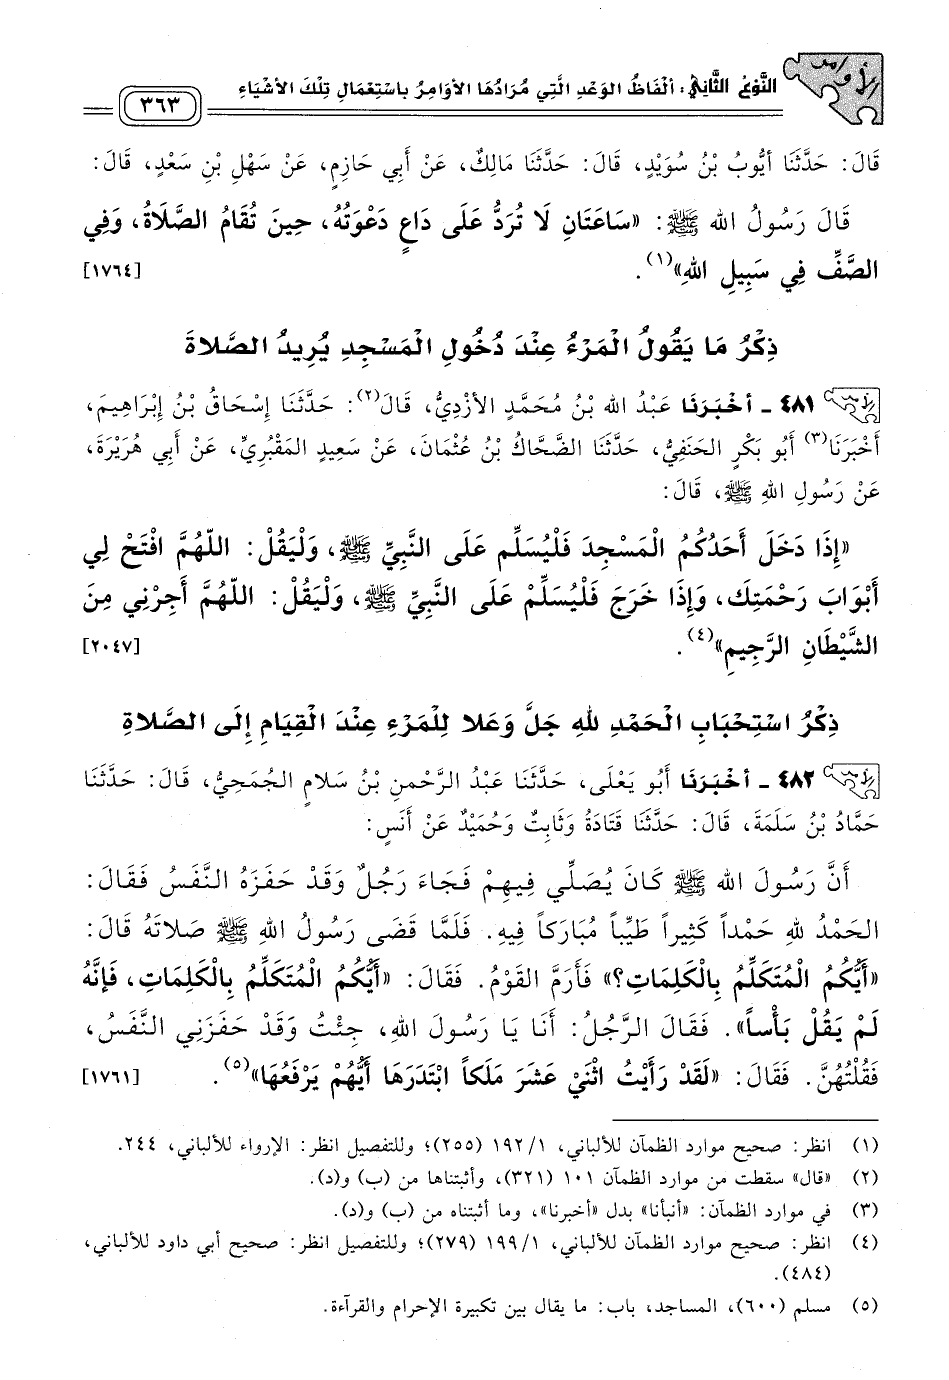 الأوامر
النَّوْعُ الثَّانِي: أَلْفَاظُ الوَعْدِ الَّتِي مُرَادُهَا الأَوَامِرُ بِاسْتِعْمَالِ تِلْكَ الأَشْيَاءِ
٣٦٣
قَالَ: حَدَّثَنَا أَيُّوبُ بْنُ سُوَيْدٍ، قَالَ: حَدَّثَنَا مَالِكٌ، عَنْ أَبِي حَازِمٍ، عَنْ سَهْلِ بْنِ سَعْدٍ، قَالَ:
قَالَ رَسُولُ الله ﷺ: «سَاعَتَانِ لَا تُرَدُّ عَلَى دَاعٍ دَعْوَتُهُ، حِينَ تُقَامُ الصَّلَاةُ، وَفِي
الصَّفِّ فِي سَبِيلِ اللهِ»(١). [١٧٦٤]
ذِكْرُ مَا يَقُولُ الْمَرْءُ عِنْدَ دُخُولِ الْمَسْجِدِ يُرِيدُ الصَّلَاةَ
٤٨١ - أَخْبَرَنَا عَبْدُ الله بْنُ مُحَمَّدٍ الأَزْدِيُّ، قَالَ(٢): حَدَّثَنَا إِسْحَاقُ بْنُ إِبْرَاهِيمَ،
أَخْبَرَنَا(٣) أَبُو بَكْرٍ الحَنَفِيُّ، حَدَّثَنَا الضَّحَّاكُ بْنُ عُثْمَانَ، عَنْ سَعِيدٍ المَقْبُرِيِّ، عَنْ أَبِي هُرَيْرَةَ،
عَنْ رَسُولِ اللهِ ﷺ، قَالَ:
«إِذَا دَخَلَ أَحَدُكُمُ الْمَسْجِدَ فَلْيُسَلِّم عَلَى النَّبِيِّ ﷺ، وَلْيَقُلْ: اللّهُمَّ افْتَحْ لِي
أَبْوَابَ رَحْمَتِكَ، وَإِذَا خَرَجَ فَلْيُسَلِّمْ عَلَى النَّبِيِّ ﷺ، وَلْيَقُلْ: اللّهُمَّ أَجِرْنِي مِنَ
الشَّيْطَانِ الرَّجِيمِ»(٤). [٢٠٤٧]
ذِكْرُ اسْتِحْبَابِ الْحَمْدِ للهِ جَلَّ وَعَلا لِلْمَرْءِ عِنْدَ الْقِيَامِ إِلَى الصَّلَاةِ
٤٨٢ - أَخْبَرَنَا أَبُو يَعْلَى، حَدَّثَنَا عَبْدُ الرَّحْمنِ بْنُ سَلامٍ الجُمَحِيُّ، قَالَ: حَدَّثَنَا
حَمَّادُ بْنُ سَلَمَةَ، قَالَ: حَدَّثَنَا قَتَادَةُ وَثَابِتٌ وَحُمَيْدٌ عَنْ أَنَسٍ:
أَنَّ رَسُولَ الله ﷺ كَانَ يُصَلِّي فِيهِمْ فَجَاءَ رَجُلٌ وَقَدْ حَفَزَهُ النَّفَسُ فَقَالَ:
الحَمْدُ للهِ حَمْداً كَثِيراً طَيِّباً مُبَارَكاً فِيهِ. فَلَمَّا قَضَى رَسُولُ اللهِ ﷺ صَلاتَهُ قَالَ:
«أَيُّكُمُ الْمُتَكَلِّمُ بِالْكَلِمَاتِ؟» فَأَرَمَّ القَوْمُ. فَقَالَ: «أَيُّكُمُ الْمُتَكَلِّمُ بِالْكَلِمَاتِ، فَإِنَّهُ
لَمْ يَقُلْ بَأْساً». فَقَالَ الرَّجُلُ: أَنَا يَا رَسُولَ اللهِ، جِئْتُ وَقَدْ حَفَزَنِي النَّفَسُ،
فَقُلْتُهُنَّ. فَقَالَ: «لَقَدْ رَأَيْتُ اثْنَيْ عَشَرَ مَلَكاً ابْتَدَرَهَا أَيُّهُمْ يَرْفَعُهَا»(٥). [١٧٦١]
(١) انظر: صحيح موارد الظمآن للألباني، ١/ ١٩٢ (٢٥٥)؛ وللتفصيل انظر: الإرواء للألباني، ٢٤٤.
(٢) «قال» سقطت من موارد الظمآن ١٠١ (٣٢١)، وأثبتناها من (ب) و(د).
(٣) في موارد الظمآن: «أنبأنا» بدل «أخبرنا»، وما أثبتناه من (ب) و(د).
(٤) انظر: صحيح موارد الظمآن للألباني، ١/ ١٩٩ (٢٧٩)؛ وللتفصيل انظر: صحيح أبي داود للألباني،
(٤٨٤).
(٥) مسلم (٦٠٠)، المساجد، باب: ما يقال بين تكبيرة الإحرام والقرآءة.